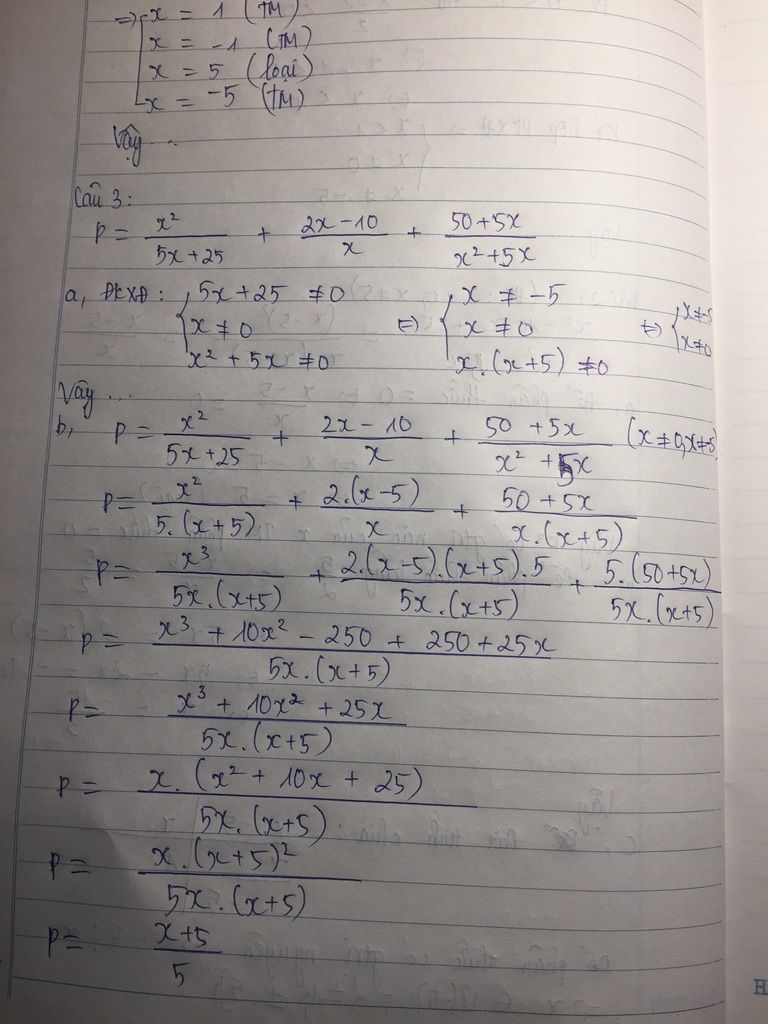 => [ x = 1 (TM)
x = -1 (TM)
x = 5 (loại)
x = -5 (TM)
Vậy ...
Câu 3:
P = x²/(5x+25) + (2x-10)/x + (50+5x)/(x²+5x)
a, ĐKXĐ: { 5x+25 ≠ 0 ⇔ { x ≠ -5 ⇔ { x ≠ -5
x ≠ 0 x ≠ 0 x ≠ 0
x² + 5x ≠ 0 x.(x+5) ≠ 0
Vậy ...
b, P = x²/(5x+25) + (2x-10)/x + (50+5x)/(x²+5x) (x ≠ 0, x ≠ -5)
P = x²/(5.(x+5)) + 2.(x-5)/x + (50+5x)/(x.(x+5))
P = x³/(5x.(x+5)) + 2.(x-5).(x+5).5/(5x.(x+5)) + 5.(50+5x)/(5x.(x+5))
P = (x³ + 10x² - 250 + 250 + 25x)/(5x.(x+5))
P = (x³ + 10x² + 25x)/(5x.(x+5))
P = x.(x² + 10x + 25)/(5x.(x+5))
P = x.(x+5)²/(5x.(x+5))
P = (x+5)/5
H